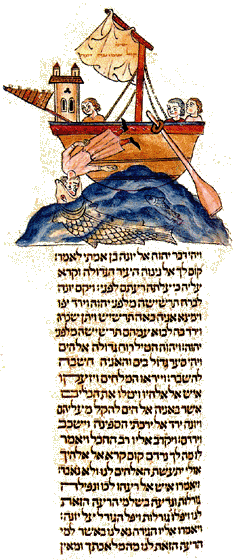 ויהי דבר יהוה אל יונה בן אמתי לאמר
קום לך אל נינוה העיר הגדולה וקרא
עליה כי עלתה רעתם לפני ויקם יונה
לברח תרשישה מלפני יהוה וירד יפו
וימצא אניה באה תרשיש ויתן שכרה
וירד בה לבוא עמהם תרשישה מלפני
יהוה ויהוה הטיל רוח גדולה אל הים
ויהי סער גדול בים והאניה חשבה
להשבר וייראו המלחים ויזעקו
איש אל אלהיו ויטלו את הכלים
אשר באניה אל הים להקל מעליהם
ויונה ירד אל ירכתי הספינה וישכב
וירדם ויקרב אליו רב החבל ויאמר
לו מה לך נרדם קום קרא אל אלהיך
אולי יתעשת האלהים לנו ולא נאבד
ויאמרו איש אל רעהו לכו ונפילה
גורלות ונדעה בשלמי הרעה הזאת
לנו ויפלו גורלות ויפל הגורל על יונה
ויאמרו אליו הגידה נא לנו באשר למי
הרעה הזאת לנו מה מלאכתך ומאין